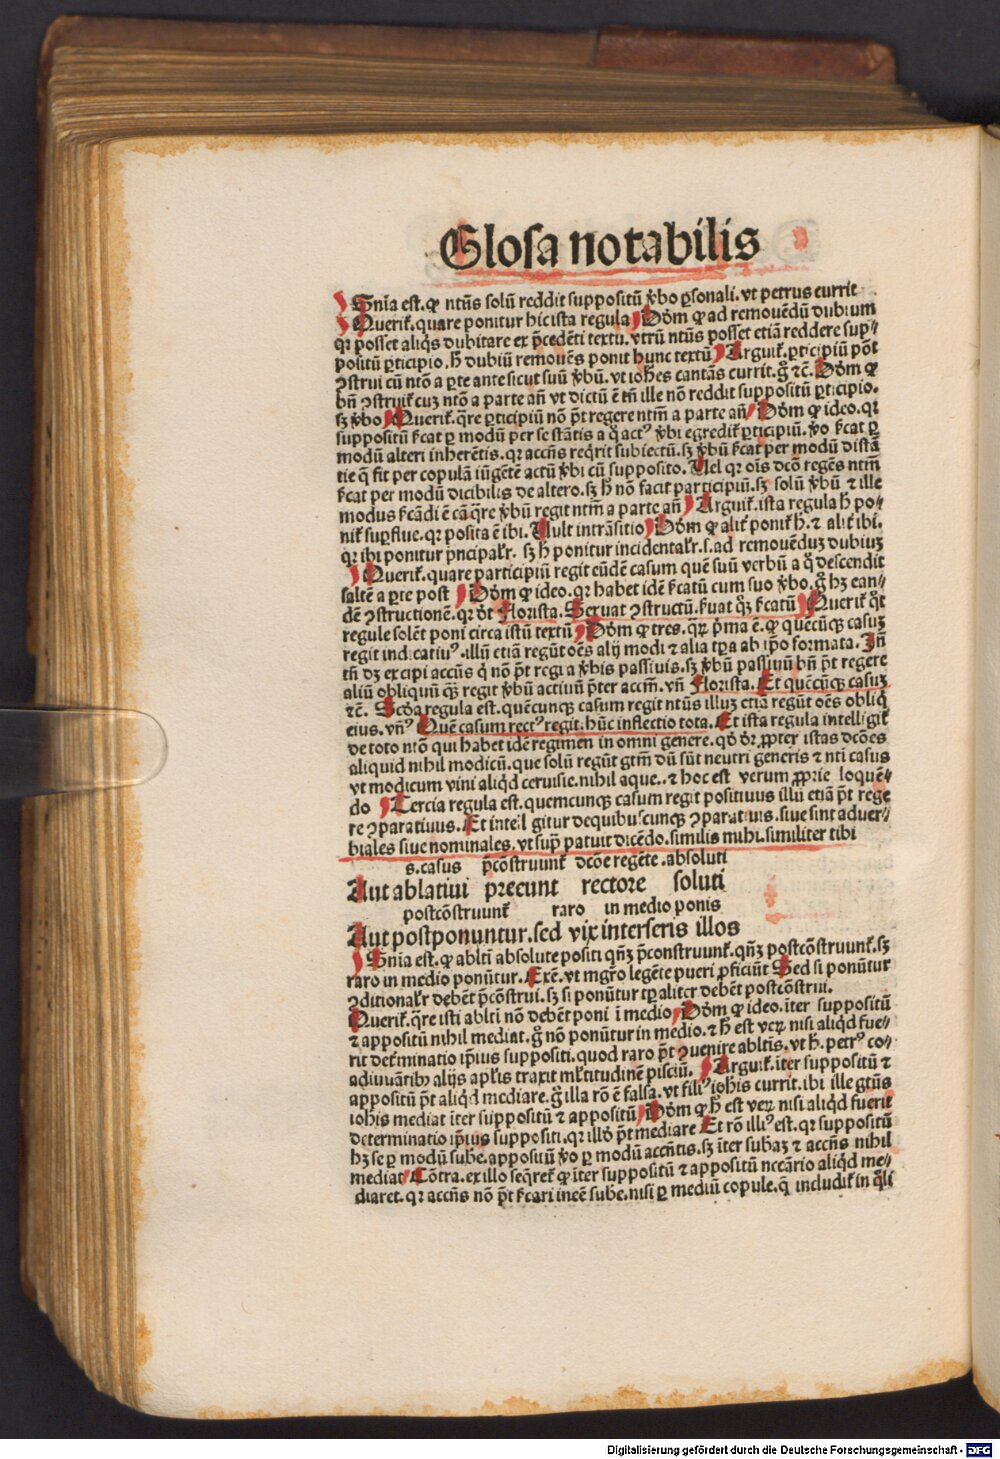 Glosa notabilis
Snīa est. ꝙ ntūs solū reddit suppositū v̄bo ꝑsonali. vt petrus currit
Querit̃. quare ponitur hic ista regula Dōm ꝙ ad remouēdū dubium
qꝛ posset aliq̄s dubitare ex p̄cedēti textu. vtrū ntūs posset etiā reddere sup⸗
positū ꝑticipio. h̄ dubiū remouēs ponit hunc textū Arguit̃. ꝑticipiū pōt
ꝯstrui cū ntō a ꝑte ante sicut suū v̄bū. vt iohēs cantās currit. g̊ ⁊c̄. Dōm ꝙ
bn̄ ꝯstruit̃ cuꝫ ntō a parte an̄ vt dictū ē tn̄ ille nō reddit suppositū ꝑticipio.
sꝫ v̄bo Querit̃. q̄re ꝑticipiū nō p̄t regere ntm̄ a parte an̄ Dōm ꝙ ideo. qꝛ
suppositū s̄cat ꝑ modū per se stātis a q̊ actꝰ v̄bi egredit̃ ꝑticipiū. v̊o s̄cat ꝑ
modū alteri inherētis. qꝛ accn̄s req̄rit subiectū. sꝫ v̄bū s̄cat per modū distā
tie q̄ fit per copulā iūgētē actū v̄bi cū supposito. Uel qꝛ oīs dcō regēs ntm̄
s̄cat per modū dicibilis de altero. sꝫ h̄ nō facit participiū. sꝫ solū v̄bū ⁊ ille
modus s̄cādi ē cā q̄re v̄bū regit ntm̄ a parte an̄ Arguit̃. ista regula h̄ po⸗
nit̃ suꝑflue. qꝛ posita ē ibi. Uult intrāsitio Dōm ꝙ alit̃ ponit̃ h̄. ⁊ alit̃ ibi.
qꝛ ibi ponitur p̄ncipalr̄. sꝫ h̄ ponitur incidentalr̄. s. ad remouēduꝫ dubiuꝫ
Querit̃. quare participiū regit eūdē casum quē suū verbū a q̊ descendit
saltē a ꝑte post Dōm ꝙ ideo. qꝛ habet idē s̄catū cum suo v̄bo. g̊ hꝫ ean⸗
dē ꝯstructionē. qꝛ dt̄ Florista. Seruat ꝯstructū. s̄uat qꝫ s̄catū Querit̃ q̊t
regule solēt poni circa istū textū Dōm ꝙ tres. qꝝ p̄ma ē. ꝙ quēcūqꝫ casuꝫ
regit indicatiuꝰ. illū etiā regūt oēs alij modi ⁊ alia tꝑa ab ip̄o formata. In̄
tn̄ dꝫ excipi accn̄s q̊ nō p̄t regi a v̄bis passiuis. sꝫ v̄bū passiuū bn̄ p̄t regere
aliū obliquū qꝫ regit v̄bū actiuū p̄ter accm̄. vn̄ Florista. Et quēcūqꝫ casuꝫ
⁊c̄. Scd̄a regula est. quēcunqꝫ casum regit ntūs illuꝫ etiā regūt oēs obliq̄
eius. vn̄ꝰ Quē casum rectꝰ regit. hūc inflectio tota. Et ista regula intelligit̃
de toto ntō qui habet idē regimen in omni genere. qd̄ dr̄. ꝓpter istas dcōes
aliquid nihil modicū. que solū regūt gtm̄ dū sūt neutri generis ⁊ nti casus
vt modicum vini aliq̊d ceruisie. nihil aque.. ⁊ hoc est verum ꝓprie loquē⸗
do Tercia regula est. quemcunqꝫ casum regit positiuus illū etiā p̄t rege
re ꝯparatiuus. Et intelligitur de quibuscunqꝫ ꝯparatiuis. siue sint aduer⸗
biales siue nominales. vt sup̄ patuit dicēdo. similis mihi. similiter tibi
s. casus p̄cōstruunt̃ dcōe regēte. absoluti
Aut ablatiui preeunt rectore soluti
postcōstruunt̃ raro in medio ponis
Aut postponuntur. sed vix interseris illos
Snīa est. ꝙ ablti absolute positi qn̄ꝫ p̄construunt̃. qn̄ꝫ postcōstruunt̃. sꝫ
raro in medio ponūtur. Exē. vt mgr̄o legēte pueri ꝓficiūt Sed si ponūtur
ꝯditionalr̄ debēt p̄cōstrui. sꝫ si ponūtur tꝑaliter debēt postcōstrui.
Querit̃. q̄re isti ablti nō debēt poni ī medio Dōm ꝙ ideo. īter suppositū
⁊ appositū nihil mediat. g̊ nō ponūtur in medio. ⁊ h̄ est veꝝ nisi aliq̊d fue⸗
rit det̄minatio ip̄ius suppositi. quod raro p̄t ꝯuenire abltīs. vt h̄. petrꝰ co⸗
adiuuātibꝫ alijs apl̄is traxit ml̄titudinē pisciū. Arguit̃. īter suppositū ⁊
appositū p̄t aliq̊d mediare. g̊ illa rō ē falsa. vt filiꝰ iohīs currit. ibi ille gtūs
iohīs mediat īter suppositū ⁊ appositū Dōm ꝙ h̄ est veꝝ nisi aliq̊d fuerit
determinatio ip̄ius suppositi. qꝛ illd̄ p̄t mediare Et rō illiꝰ est. qꝛ suppositū
hꝫ se ꝑ modū sube. appositū v̊o ꝑ modū accn̄tis. sꝫ īter subaꝫ ⁊ accn̄s nihil
mediat Cōtra. ex illo seq̄ret̃ ꝙ īter suppositū ⁊ appositū nccārio aliq̊d me⸗
diaret. qꝛ accn̄s nō p̄t s̄cari inēē sube. nisi ꝑ mediū copule. q̄ includit̃ in q̊lꝫ
Digitalisierung gefördert durch die Deutsche Forschungsgemeinschaft - DFG